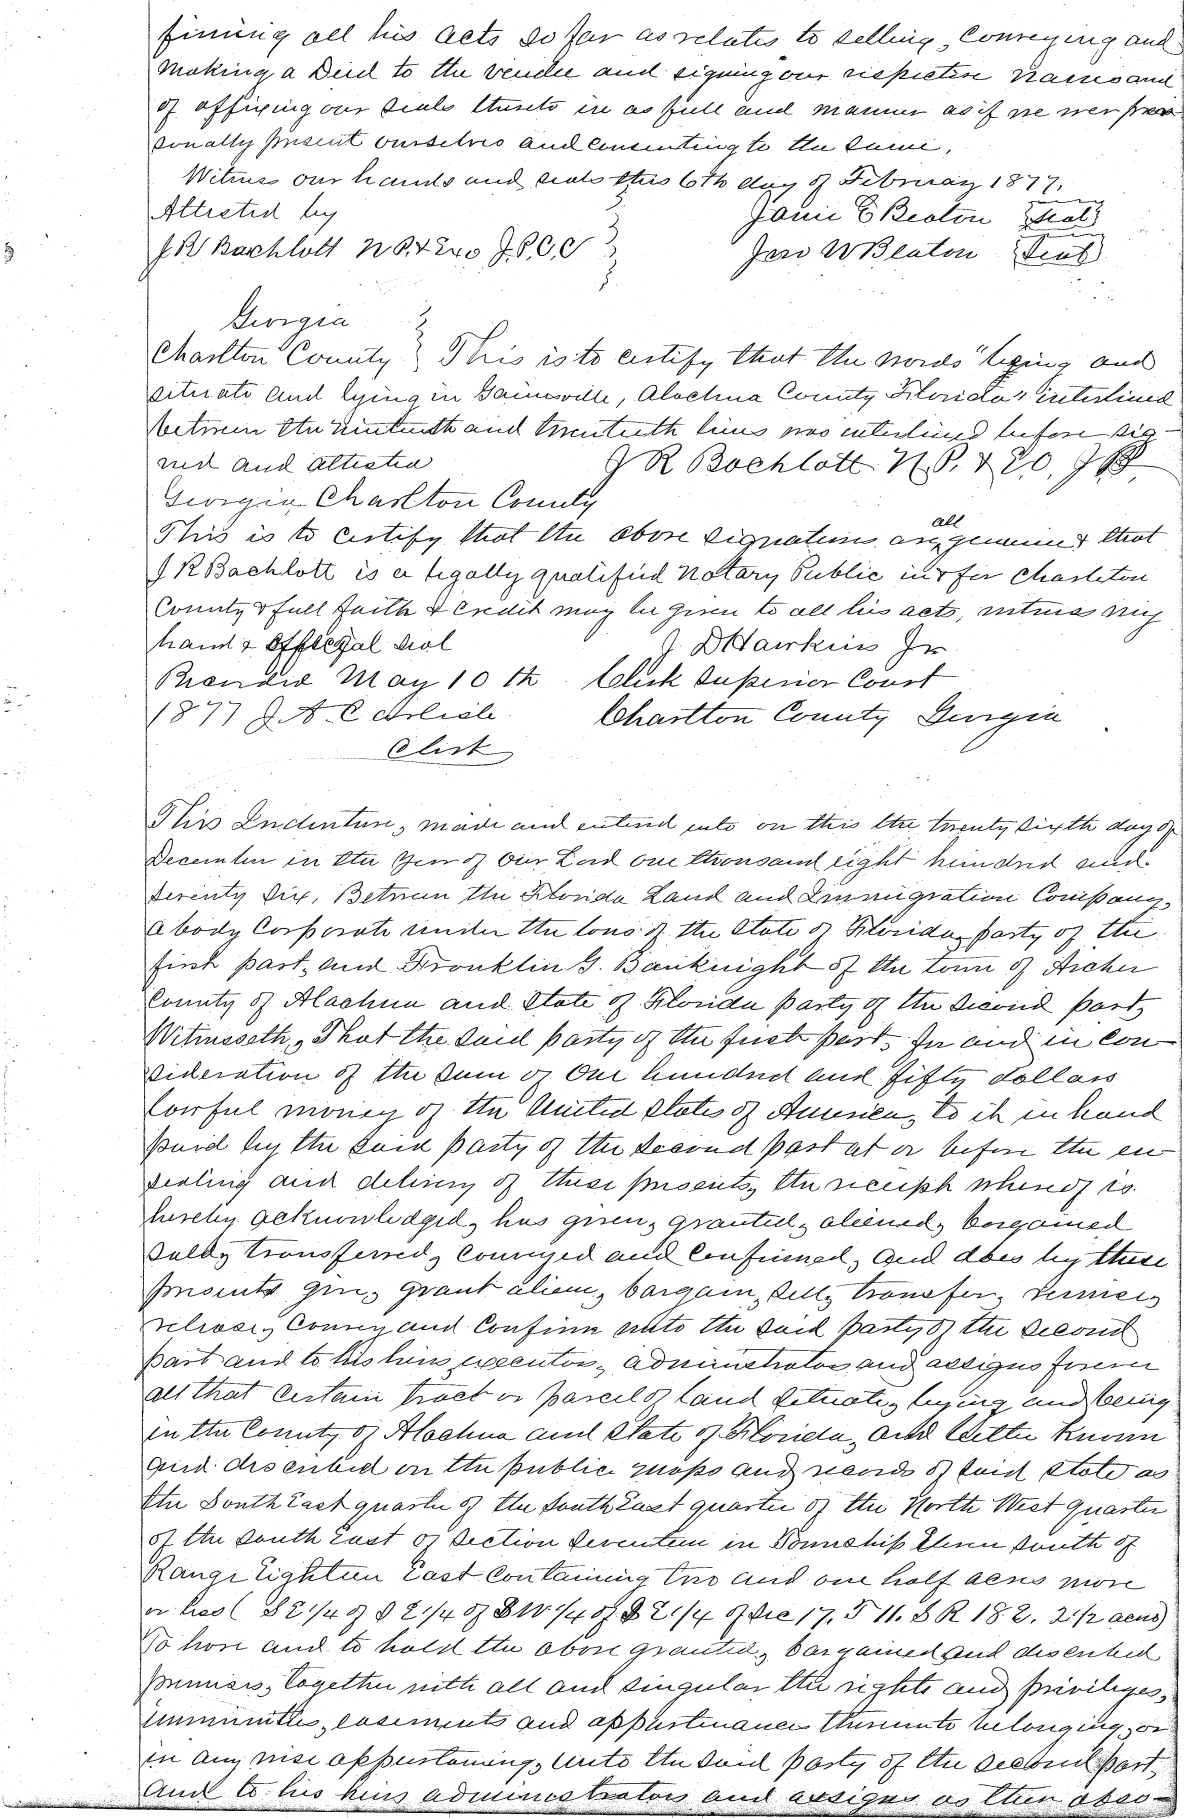 firming all his acts so far as relates to selling, conveying and
making a Deed to the vendee and signing our respective names and
of affixing our seals thereto in as full and manner as if we wer per
sonally present ourselves and consenting to the same.
Witness our hands and seals this 6th day of February 1877.
Attested by
Janie E Beaton Seal
J R Bachlott N P. & Exo J. P. C. C
Jno W Beaton Seal
Georgia
Charlton County } This is to certify that the words "lying and
situate and lying in Gainesville, Alachua County Florida" interlined
between the ninteenth and twentieth lines was interlined before sig-
ned and attested
J R Bachlott N. P. & EO. J P.
Georgia Charlton County
This is to certify that the above signatures are all genuine & that
J R Bachlott is a legally qualified Notary Public in & for Charlton
County & full faith & credit may be given to all his acts, witness my
hand & official seal
J. D Hawkins Jr
Recorded May 10 th
Clerk Superior Court
1877 J. A. Carlisle
Charlton County Georgia
Clerk
This Indenture, made and entered into on this the twenty sixth day of
December in the year of our Lord one thousand eight hundred and
seventy six, Between the Florida Land and Immigration Company,
a body Corporate under the laws of the State of Florida, party of the
first part, and Franklin G. Bauknight of the town of Archer
County of Alachua and State of Florida party of the second part,
Witnesseth, That the said party of the first part, for and in con-
sideration of the sum of One hundred and fifty dollars
lawful money of the United States of America, to it in hand
paid by the said party of the second part at or before the en-
sealing and delivery of these presents, the receipt whereof is
hereby acknowledged, has given, granted, aliened, bargained
sold, transferred, conveyed and confirmed, and does by these
presents give, grant alien, bargain, sell, transfer, remise,
release, convey and confirm unto the said party of the second
part and to his heirs, executors, administrators and assigns forever
all that certain tract or parcel of land situate, lying and being
in the County of Alachua and State of Florida, and better known
and described on the public maps and records of said state as
the South East quarter of the South East quarter of the North West quarter
of the South East of Section Seventeen in Township Eleven South of
Range Eighteen East containing two and one half acres more
or less ( S E 1/4 of S E 1/4 of S W 1/4 of S E 1/4 of Sec 17. T 11. S R 18 E. 2 1/2 acres)
To have and to hold the above granted, bargained and described
premises, together with all and singular the rights and privileges,
immunities, easements and appurtenances thereunto belonging, or
in any wise appertaining, unto the said party of the second part,
and to his heirs administrators and assigns as their abso-